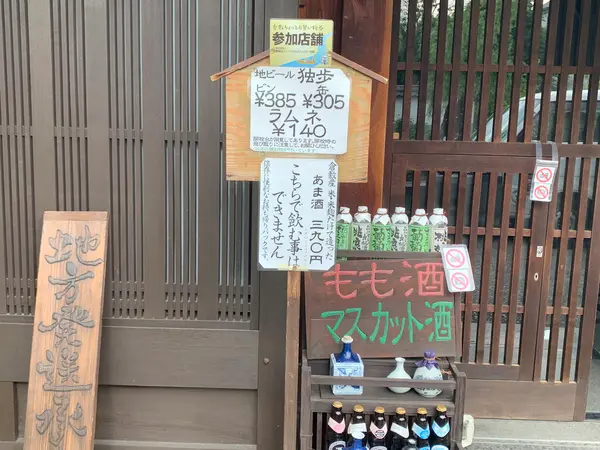 参加店舗
地ビール 独歩
ビン 缶
¥385 ¥305
ラムネ
¥140
倉敷産 米・米麹だけで造った
あま酒 三九〇円
こちらで飲む事は
できません
もも酒
マスカット酒
地方発送承